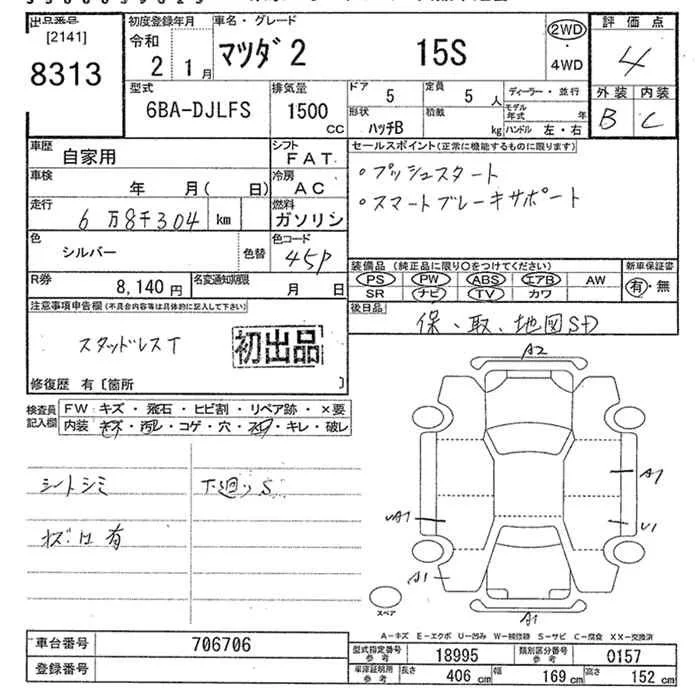 出品番号
[2141]
8313
初度登録年月
令和
2年 1月
車名・グレード
マツダ2 15S
2WD
・
4WD
評価点
4
型式
6BA-DJLFS
排気量
1500
cc
ドア
5
定員
5人
形状
ハッチB
積載
kg
ディーラー・並行
モデル年式 年
ハンドル 左・右
外装 内装
B C
車歴
自家用
シフト
FAT
セールスポイント(正常に機能するものに限ります)
・プッシュスタート
・スマートブレーキサポート
車検
年 月( 日)
冷房
AC
走行
6万8千304 km
燃料
ガソリン
色
シルバー
色替
色コード
45P
R券
8,140円
名変通知期限
月 日
装備品(純正品に限り○をつけてください)
PS PW ABS エアB AW
SR ナビ TV カワ
新車保証書
有・無
後日品
保、取、地図SD
注意事項申告欄(不具合内容等は具体的に記入して下さい)
スタッドレスT
初出品
修復歴 有〔箇所 〕
検査員
記入欄
FW キズ・飛石・ヒビ割・リペア跡・×要
内装 キズ・汚レ・コゲ・穴・スレ・キレ・破レ
シートシミ
下廻りS
A2
A1
U1
A1
A1
スペア
A-キズ E-エクボ U-凹み W-補修跡 S-サビ C-腐食 XX-交換済
車台番号
706706
登録番号
型式指定番号
参考
18995
類別区分番号
参考
0157
車庫証明用
参考
長さ
406 cm
幅
169 cm
高さ
152 cm